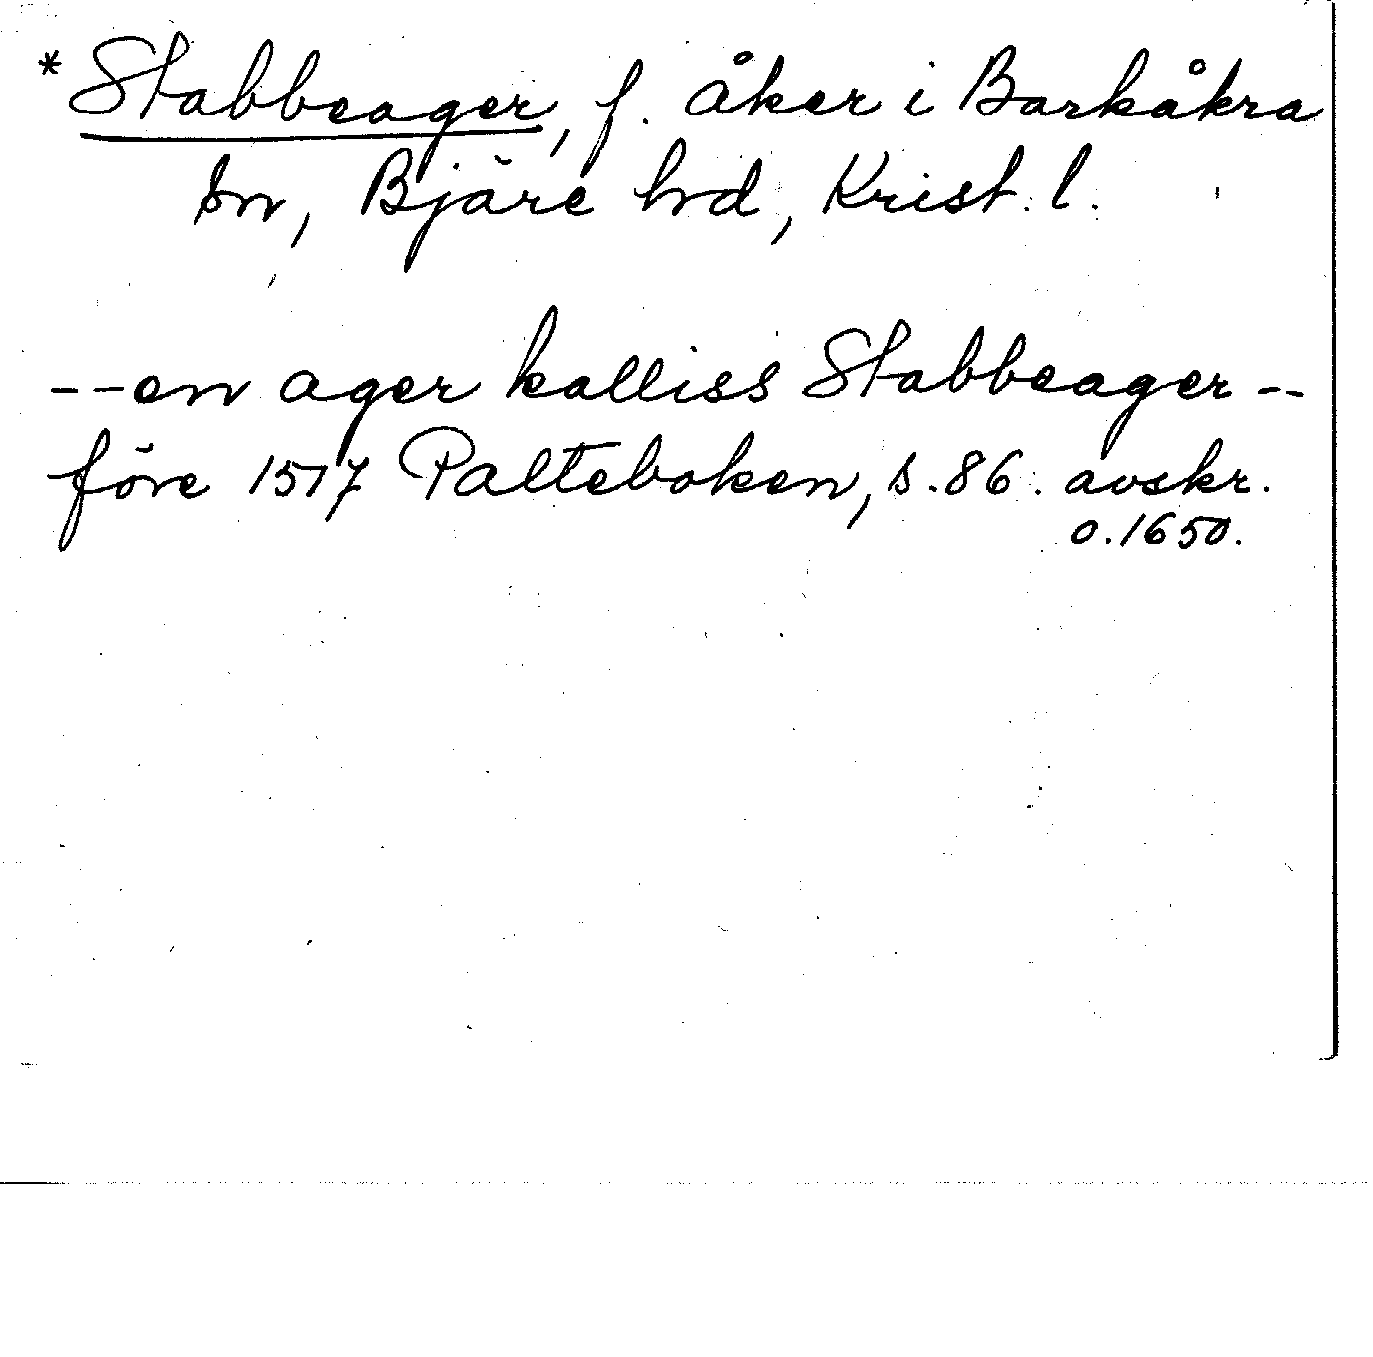 *Stabbeager, f. åker i Barkåkra
sn, Bjäre hd, Krist. l.
--en ager kalliss Stabbeager--
före 1517 Palteboken, s. 86. avskr.
o. 1650.